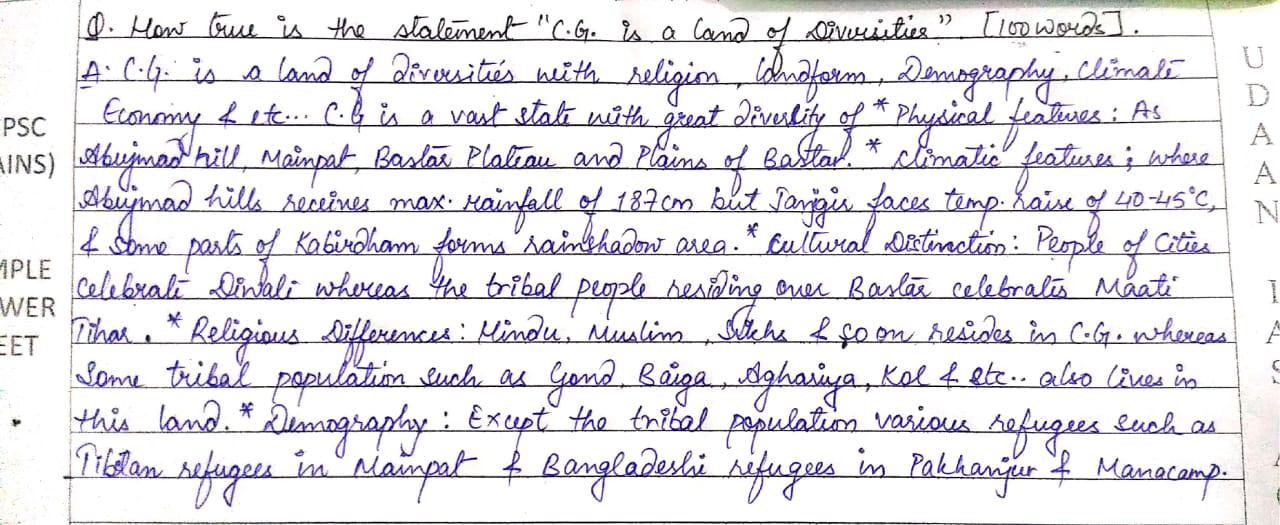 Q. How true is the statement "C.G. is a land of Diversities" [100 words].
A: C.G. is a land of diversities with religion, landform, Demography, Climate
Economy & etc... C.G is a vast state with great diversity of * Physical features: As
Abujmad hill, Mainpat, Bastar Plateau and Plains of Bastar. * climatic features; where
Abujmad hills receives max. rainfall of 187cm but Janjgir faces temp. raise of 40-45°C,
& some parts of Kabirdham forms rainshadow area. * Cultural Distinction: People of Cities
celebrate Diwali whereas the tribal people residing over Bastar celebrates Maati
Tihar. * Religious Differences: Hindu, Muslim, Sikhs & so on resides in C.G. whereas
Some tribal population such as Gond, Baiga, Aghariya, Kol & etc.. also lives in
this land. * Demography: Except the tribal population various refugees such as
Tibetan refugees in Mainpat & Bangladeshi refugees in Pakhanjur & Manacamp.
PSC
AINS)
MPLE
WER
EET
U
D
A
A
N
I
A
S